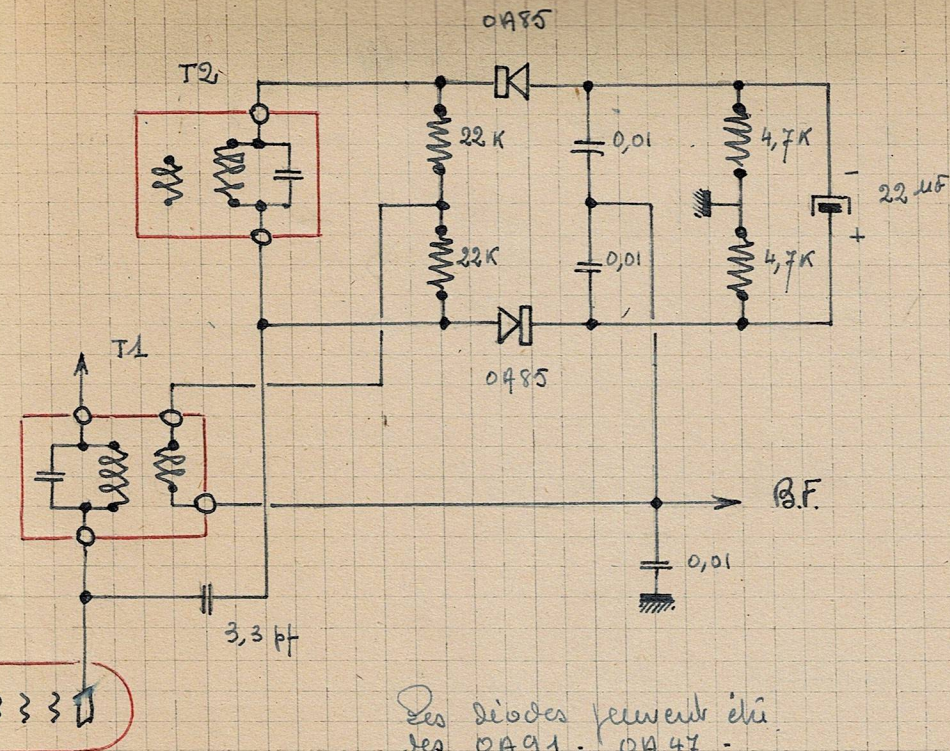 OA85
T2
22K
0,01
4,7K
22 µF
-
+
22K
0,01
4,7K
T1
OA85
B.F.
0,01
3,3 pf
Les diodes peuvent être
des OA91. OA47 -